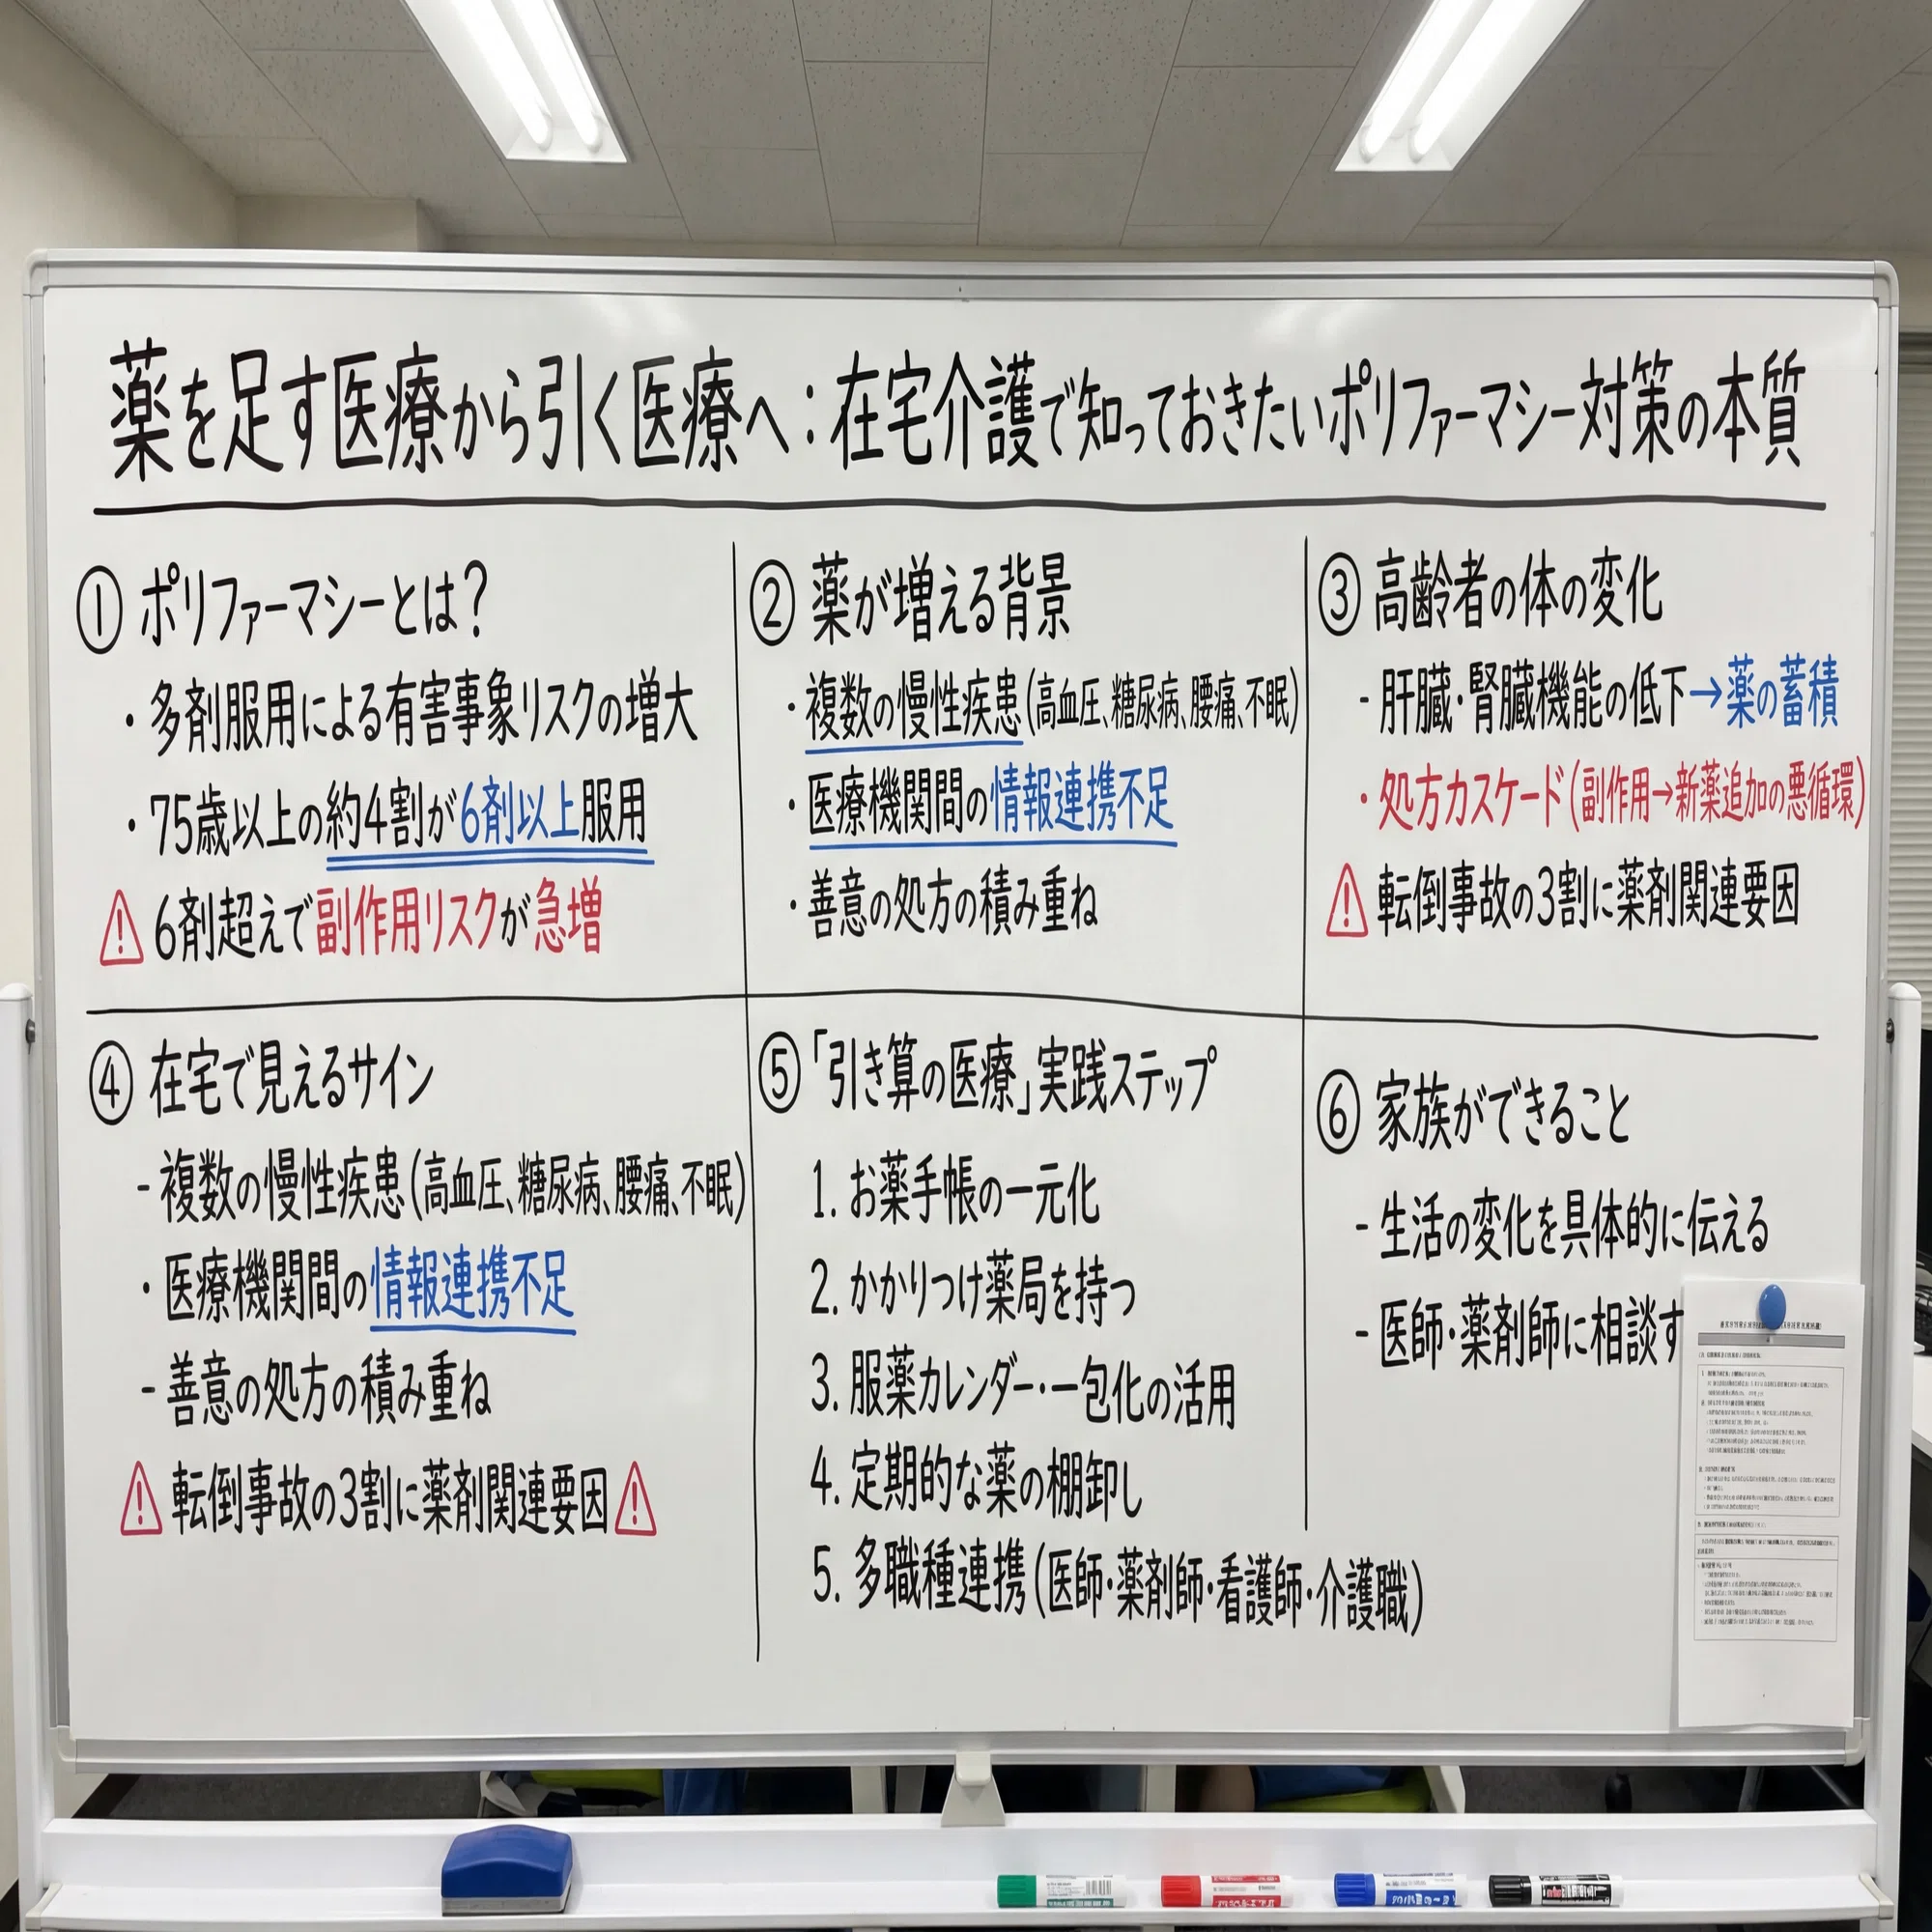 薬を足す医療から引く医療へ:在宅介護で知っておきたいポリファーマシー対策の本質
① ポリファーマシーとは?
・多剤服用による有害事象リスクの増大
・75歳以上の約4割が6剤以上服用
⚠ 6剤超えで副作用リスクが急増
② 薬が増える背景
・複数の慢性疾患(高血圧、糖尿病、腰痛、不眠)
・医療機関間の情報連携不足
・善意の処方の積み重ね
③ 高齢者の体の変化
- 肝臓・腎臓機能の低下→薬の蓄積
・処方カスケード(副作用→新薬追加の悪循環)
⚠ 転倒事故の3割に薬剤関連要因
④ 在宅で見えるサイン
- 複数の慢性疾患(高血圧、糖尿病、腰痛、不眠)
・医療機関間の情報連携不足
- 善意の処方の積み重ね
⚠ 転倒事故の3割に薬剤関連要因 ⚠
⑤ 「引き算の医療」実践ステップ
1. お薬手帳の一元化
2. かかりつけ薬局を持つ
3. 服薬カレンダー・一包化の活用
4. 定期的な薬の棚卸し
5. 多職種連携(医師・薬剤師・看護師・介護職)
⑥ 家族ができること
- 生活の変化を具体的に伝える
- 医師・薬剤師に相談す